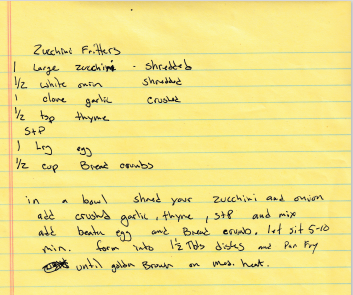 Zucchini Fritters
1 large zucchini - shredded
1/2 white onion shredded
1 clove garlic crushed
1/2 tsp thyme
S+P
1 Lrg egg
1/2 cup Bread crumbs
in a bowl shred your zucchini and onion
add crushed garlic, thyme, S+P and mix
add beaten egg and Bread crumb. let sit 5-10
min. form into 1 1/2 Tbls disks and Pan Fry
until golden Brown on med. heat.